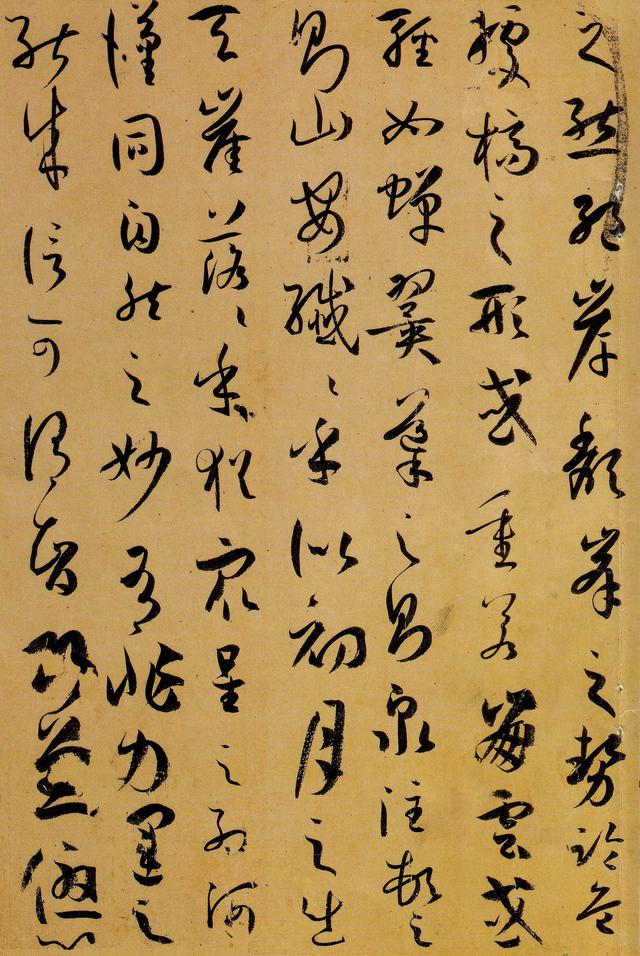 之態絶岸頹峯之勢臨危
據槁之形或重若崩雲或
輕如蟬翼導之則泉注頓之
則山安纖〻乎似初月之出
天崖落〻乎猶衆星之列河
漢同自然之妙有非力運之
能成信可謂智巧兼優心